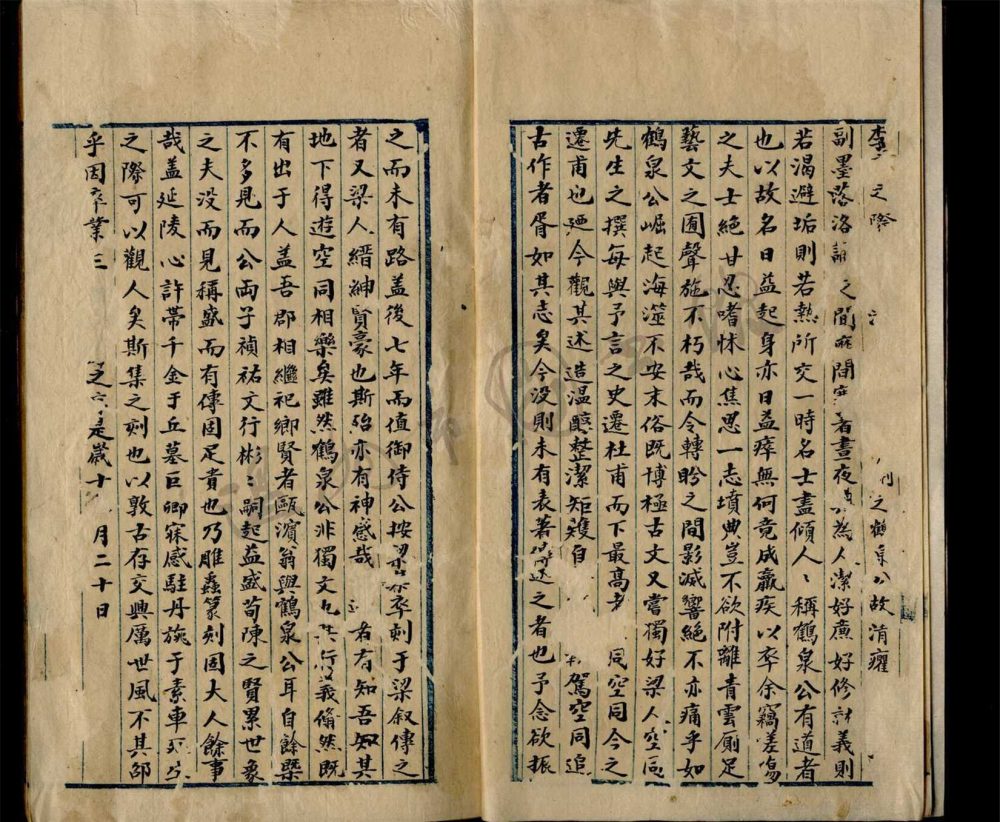 李 之際 刋之鶴泉公故清癯
副墨落洛誦之間 晝夜 為人潔好廣好修討義則
若渴避垢則若熱所交一時名士盡傾人〻稱鶴泉公有道者
也以故名日益起身亦日益瘁無何竟成羸疾以卒余竊嗟傷
之夫士絕甘忍嗜怵心焦思一志墳典豈不欲附離青雲厠足
藝文之囿聲施不朽哉而令轉盻之間影滅響絕不亦痛乎如
鶴泉公崛起海澨不安末俗既博極古文又嘗獨好梁人空同
先生之撰每與予言之史遷杜甫而下最高 同空同今之
遷甫也廼今觀其述造溫醇整潔矩矱自 駕空同追
古作者胥如其志矣今没則未有表著 述之者也予念欲振
之而未有路盖後七年而值御侍公按 卒刺于梁叙傳之
者又梁人縉紳賢豪也斯殆亦有神感哉 者有知吾知其
地下得遊空同相樂矣雖然鶴泉公非獨文也其行義脩然既
有出于人盖吾郡相繼祀鄉賢者甌濱翁與鶴泉公耳自餘槩
不多見而公兩子禎祐文行彬〻嗣起益盛荀陳之賢累世象
之夫没而見稱盛而有傳固足貴也乃雕蟲篆刻固大人餘事
哉盖延陵心許帶千金于丘墓巨卿寐感駐丹旐于素車
之際可以觀人矣斯集之刻也以敦古存交興厲世風不其卲
乎因卒業三 之 是歲十 月二十日